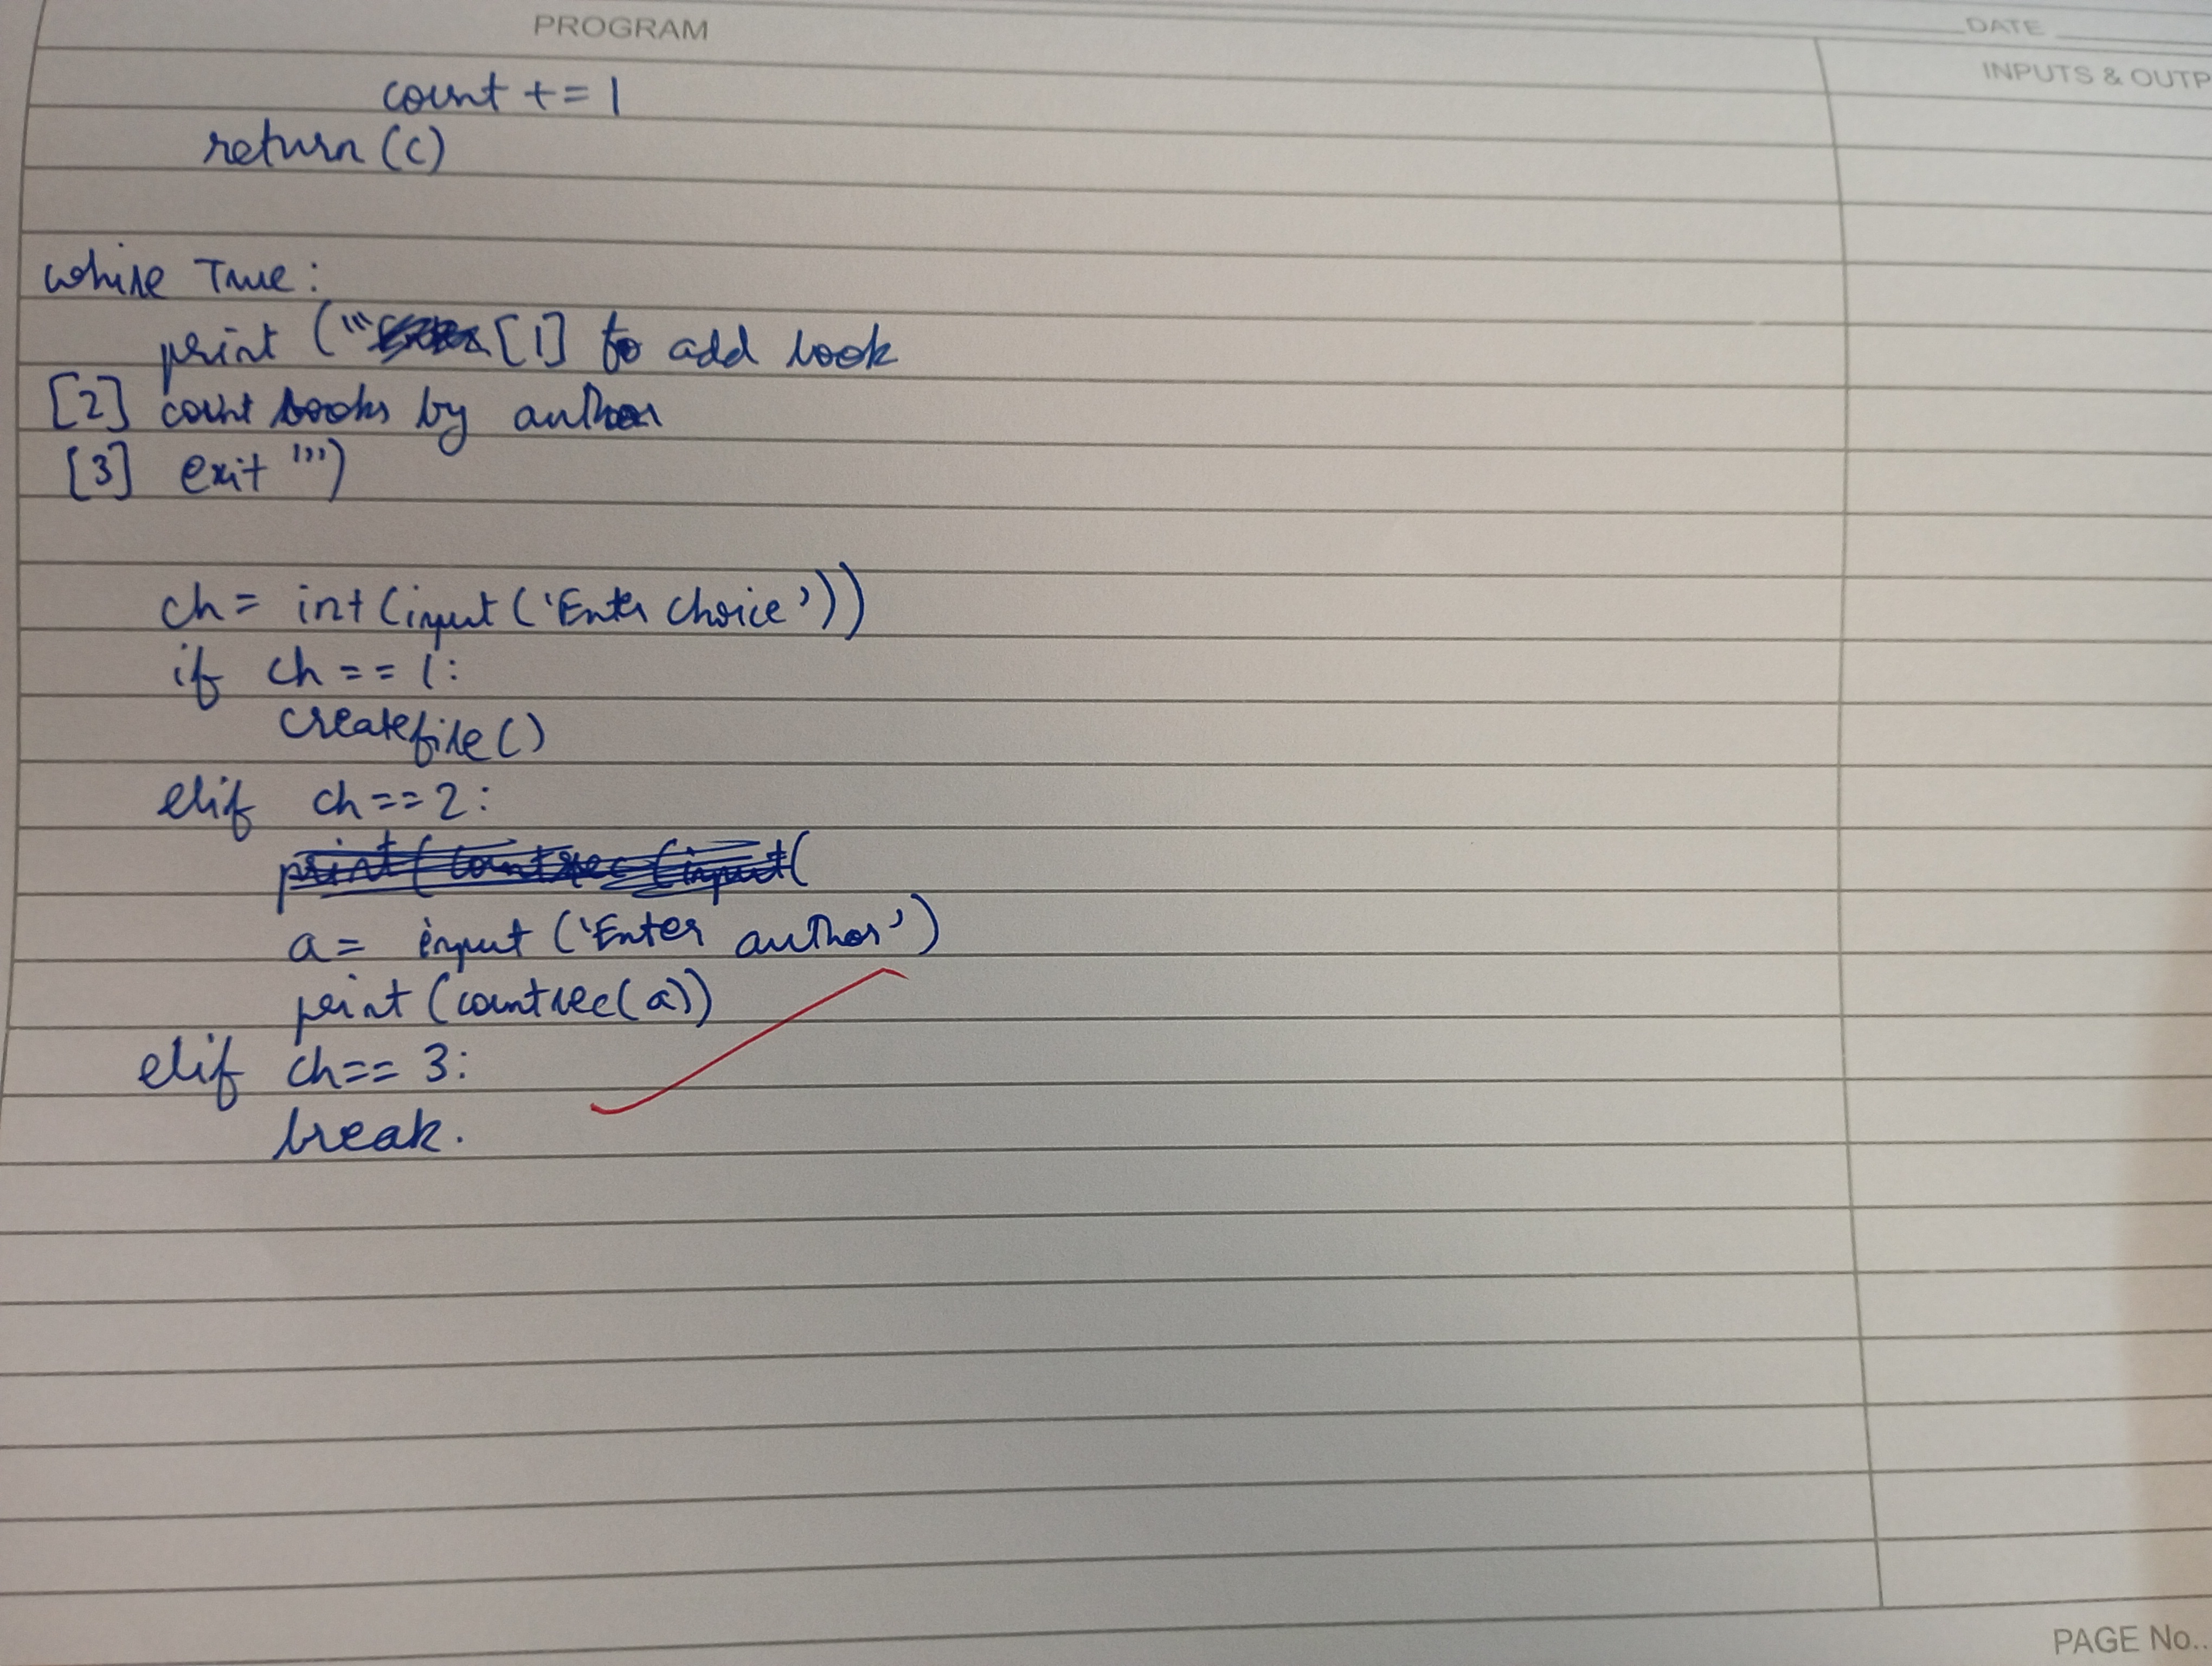 PROGRAM
DATE
INPUTS & OUTP
count += 1
return (c)
while True:
print ('''[1] to add book
[2] count books by author
[3] exit ''')
ch = int (input ('Enter choice'))
if ch == 1:
createfile()
elif ch == 2:
print( countrec (input(
a = input ('Enter author')
print (countrec(a))
elif ch == 3:
break.
PAGE No..